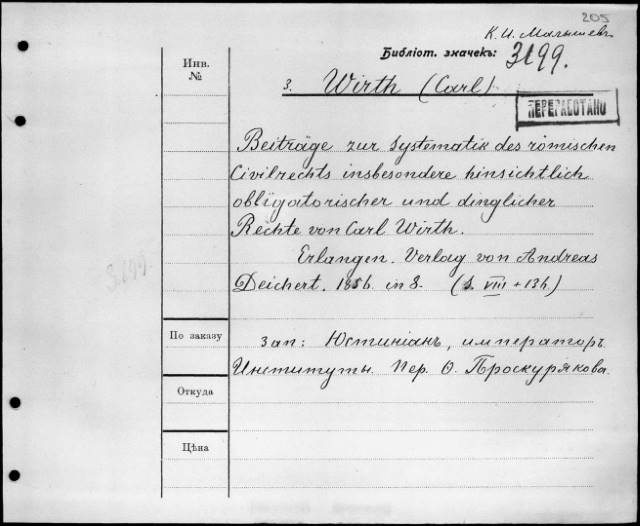 205
К. И. Малышевъ
Библіот. значекъ: 3199.
Инв. №
3. Wirth (Carl)
ПЕРЕРАБОТАНО
Beiträge zur Systematik des römischen
Civilrechts insbesondere hinsichtlich
obligatorischer und dinglicher
Rechte von Carl Wirth.
Erlangen. Verlag von Andreas
Deichert. 1856. in 8. (S. VIII + 134.)
3199.
По заказу
зап: Юстиніанъ, императоръ
Институты. Пер. Ѳ. Проскурякова.
Откуда
Цѣна